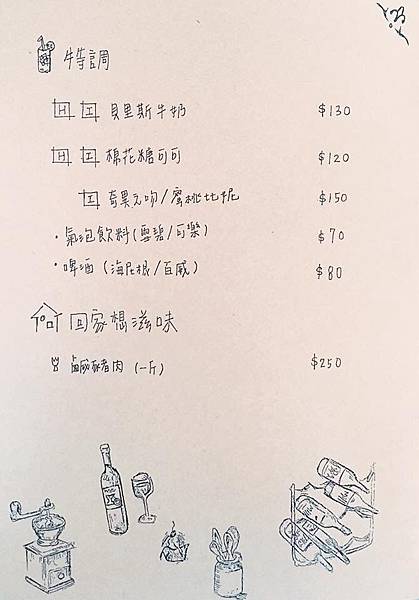 特調
H I 貝里斯牛奶 $130
H I 棉花糖可可 $120
I 奇異之吻/蜜桃比妮 $150
·氣泡飲料(雪碧/可樂) $70
·啤酒(海尼根/百威) $80
回家想滋味
鹹豬肉(一斤) $250